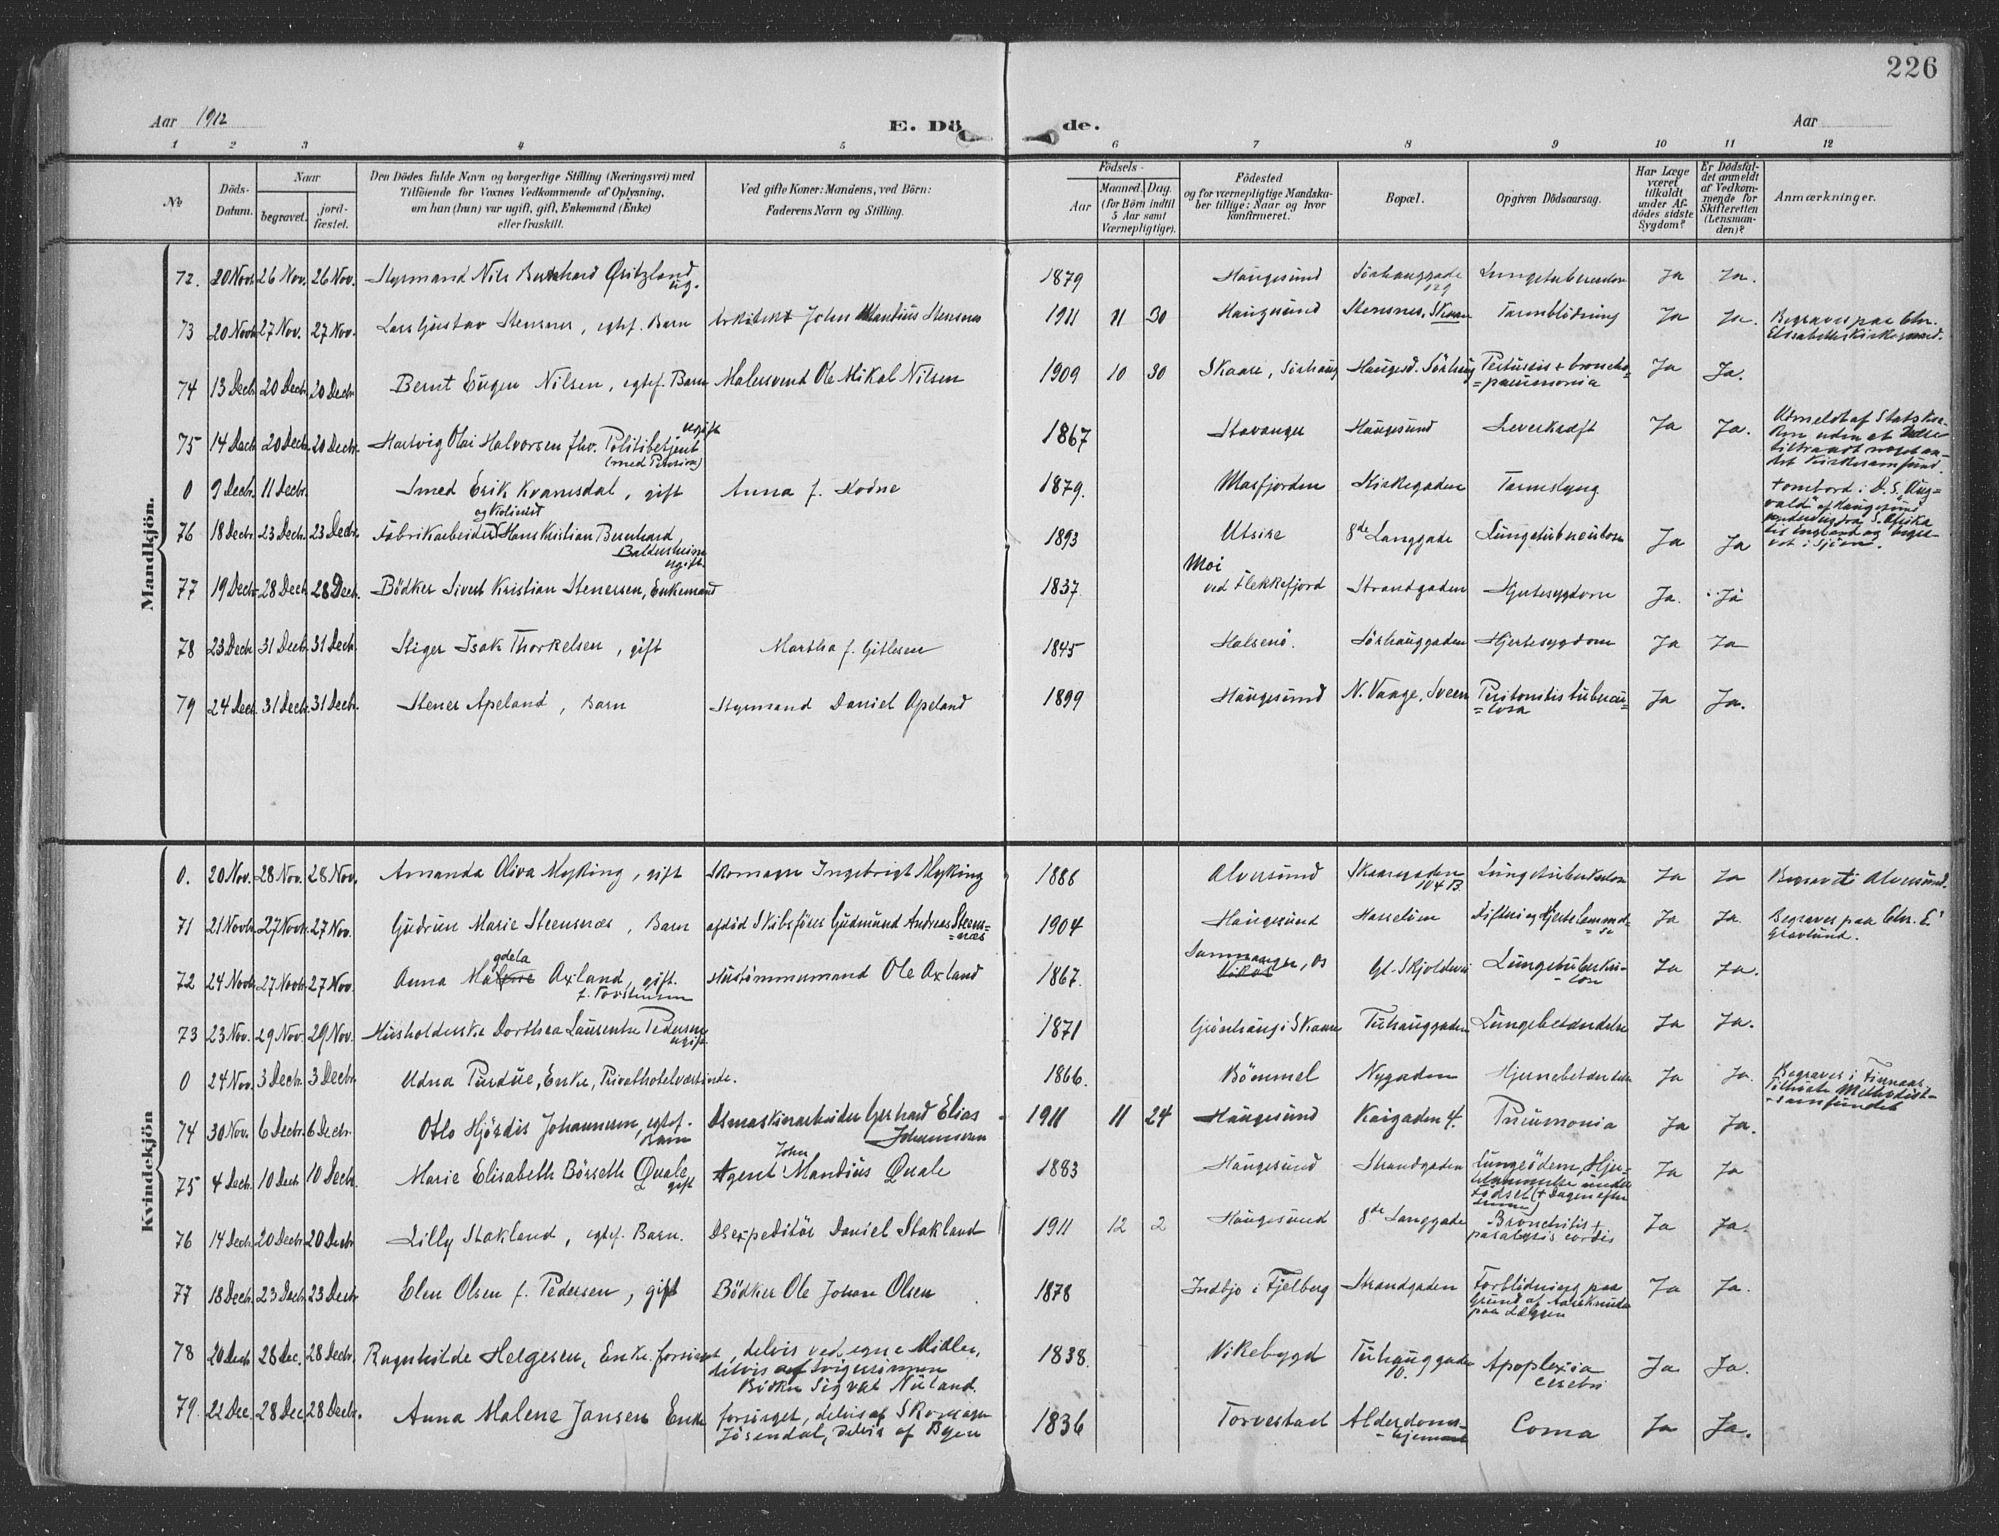 226
Aar 1912
E. Dö
de.
Aar
1 2 3 4 5 6 7 8 9 10 11 12
No
Döds-Datum.
Naar
begravet.
jord-fæstet.
Den Dödes fulde Navn og borgerlige Stilling (Næringsvei) med
Tilföiende for Voxnes Vedkommende af Oplysning,
om han (hun) var ugift, gift, Enkemand (Enke)
eller fraskilt.
Ved gifte Koner: Mandens, ved Börn:
Faderens Navn og Stilling.
Födsels-
Aar
Maaned. Dag.
(for Börn indtil
5 Aar samt
Værnepligtige).
Födested
og for værnepligtige Mandska-
ber tillige: Naar og hvor
konfirmeret.
Bopæl.
Opgiven Dödsaarsag.
Har Læge
været
tilkaldt
under Af-
dödes sidste
Sygdom?
Er Dödsfal-
det anmeldt
af Vedkom-
mende for
Skifteretten
(Lensman-
den)?
Anmærkninger.
Mandkjön.
72. 20 Novb. 26 Nov. 26 Nov. Styrmand Nils Bernhard Qritzland ug. 1879 Haugesund Sörhauggade 129 Lungetuberculose Ja Ja.
73 20 Novb. 27 Nov. 27 Nov. Lars Gustav Stensnes, egtef. Barn Arkitekt John Mandius Stensnes 1911 11 30 Haugesund Stensnes, Skaare Tarmblödning Ja Ja. Begraves paa Chr.
Elisabeths Kirkegaard.
74 13 Decb. 20 Decb. 20 Decb. Bernt Eugen Nilsen, egtef. Barn Malersvend Ole Mikal Nilsen 1909 10 30 Skaare, Sörhaug Haugesd. Sörhaug Pertussis + broncho-
=pneumonia Ja Ja.
75 14 Decb. 20 Decb. 20 Decb. Hartvig Olai Halvorsen fhv. Politibetjent ugift
(med Pension) 1867 Stavanger Haugesund Leverkræft Ja Ja. Udmeldt af Statskir-
ken uden at
0 9 Decb. 11 Decb. Smed Erik Kvamsdal, gift Anna f. Hodne 1879. Masfjorden Kirkegaden + ombord i D.S. "Aug-
vald" af Haugesund
underveis fra S. Afrika
til England og begra-
vet i Sjöen.
76 18 Decb. 23 Decb. 23 Decb. Fabrikarbeider og Violinist Hans Kristian Bernhard
Baldersheim ugift. 1893 Utsire 8de Langgade Lungetuberculose Ja Ja
77 19 Decb. 28 Decb. 28 Decb. Bödker Sivert Kristian Stenersen, Enkemand 1837. Moi
ved Flekkefjord Strandgaden Hjertesygdom Ja. Ja
78 23 Decb. 31 Decb. 31 Decb. Stiger Isak Thorkelsen, gift Martha f. Gitlesen 1845 Halsenö. Sörhauggaden Hjertesygdom Ja Ja
79 24 Decb. 31 Decb. 31 Decb. Stener Apeland, Barn Styrmand Daniel Apeland 1899 Haugesund N. Vaage, Sveen Peritonitis tubercu-
=losa Ja Ja.
Kvindekjön
0. 20 Nov. 28 Nov. 28 Nov. Amanda Oliva Myking, gift Skomager Ingebrigt Myking 1886 Alversund Skaaregaden 104 B Lungetuberkulose Ja Ja Begravet i Alversund.
71 21 Novb. 27 Novb. 27 Nov. Gudrun Marie Steensnæs, Barn afdöd Skibsförer Gudmund Andreas Steens-
=næs 1904 Haugesund Hasseloen Difteri og Hjertelammel-
=se Ja Ja. Begraves paa Chr. E's
Gravlund.
72 24 Novb. 27 Novb. 27 Nov. Anna Magdela Axland, gift.
f. Torstensen Hustömmermand Ole Axland 1867. Sammanger, Os Gl. Skjoldevei Lungetuberku-
-lose Ja Ja.
73 23 Nov. 29 Nov. 29 Nov. Husholderske Dorthea Laurentse Pedersen
ugift 1871 Grönhaug i Skaare Tuhauggaden Lungebetændelse Ja Ja.
0 24 Nov. 3 Decb. 3 Decb. Udna Perdue, Enke, Privathotelværtinde. 1866. Bömmel Nygaden Hjernebetændelse Ja Ja. Begraves i Finnaas
tilhörte Methodist-
-samfundet
74 30 Nov. 6 Decb. 6 Decb. Otto Hjördis Johannesen, egtef.
Barn Osmaskinarbeider Gerhard Elias
Johannesen 1911 11 24 Haugesund Kaigaden 4. Pneumonia Ja Ja.
75 4 Decb. 10 Decb. 10 Decb. Marie Elisabeth Börseth Quale,
gift Agent John Mandius Quale 1883 Haugesund Strandgaden Lungeödem, Hjer-
telammelse under
Födsel († Dagen efter Ja Ja
76 14 Decb. 20 Decb. 20 Decb. Lilly Stakland, egtef. Barn. Dsexpeditör Daniel Stakland 1911 12 2 Haugesund 8de Langgade Bronchitis +
paralysis cordis Ja Ja.
77 18 Decb. 23 Decb. 23 Decb. Elen Olsen f. Pedersen, gift Bödker Ole Johan Olsen 1878 Indbjo i Fjelberg Strandgaden Forblödning paa
Grund af Aareknude
paa Læggen Ja Ja.
78 20 Decb. 28 Dec. 28 Decb. Ragnhilde Helgesen, Enke. forsörget, delvis ved egne Midler,
delvis af Svigersönnen
Bödker Sigvat Nüland. 1838. Vikebygd Tuhauggaden
10. Apoplexia
cerebri Ja Ja.
79. 22 Dec. 28 Dec. 28 Decb. Anna Malene Jansen Enke forsörget, delvis af Skomager
Jösendal, delvis af Byen 1836 Torvestad Alderdoms-
-hjemmet Coma Ja Ja.